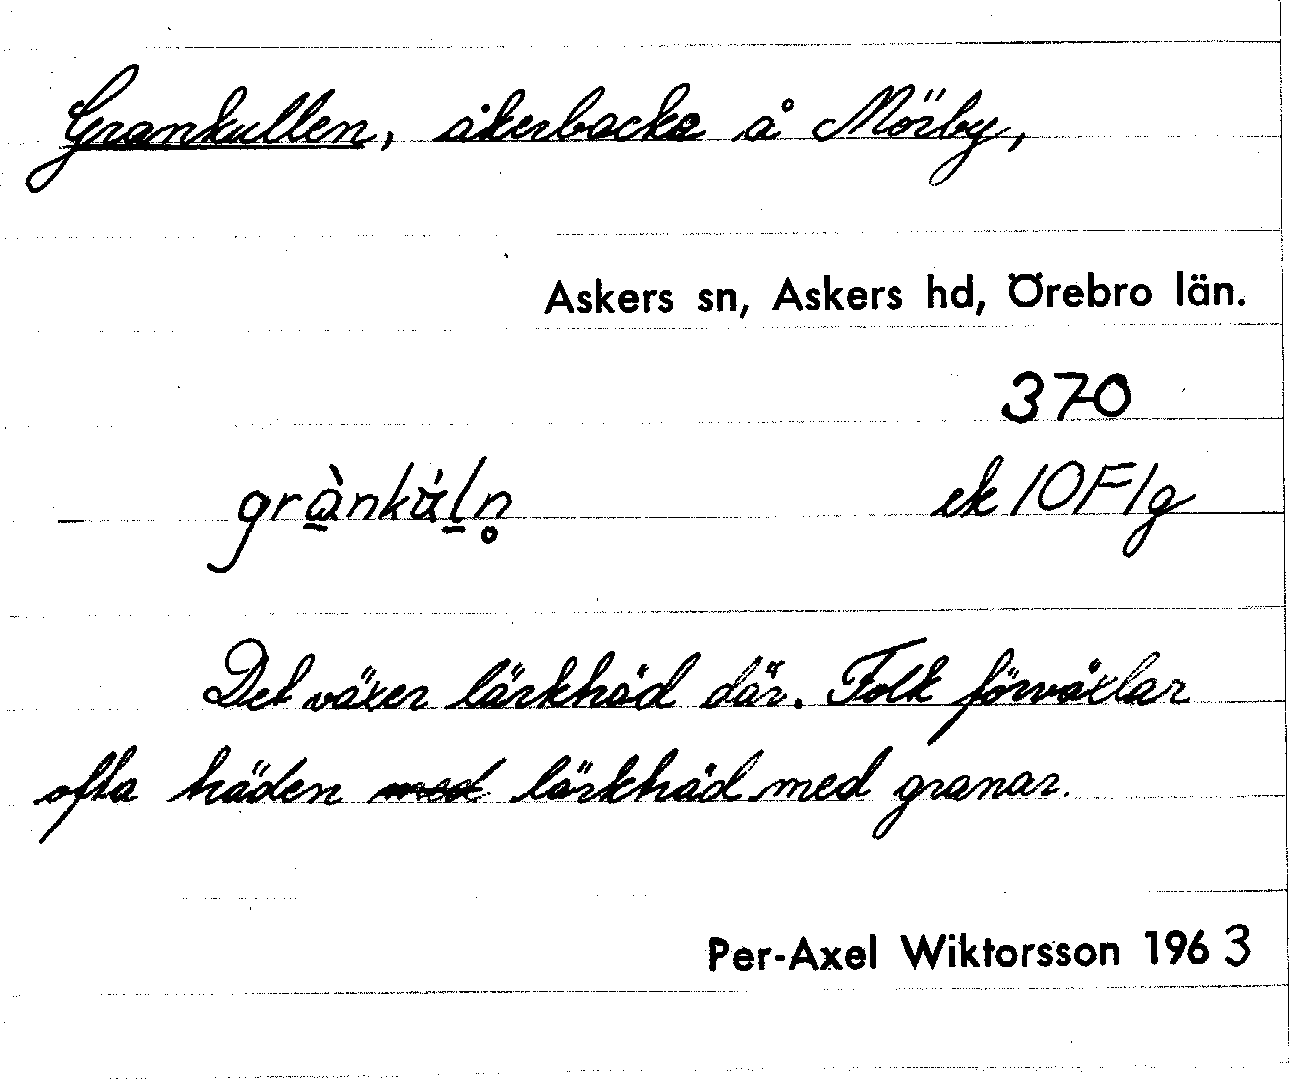 Grankullen, åkerbacke å Mörby,
Askers sn, Askers hd, Örebro län.
370
grànkúln̥ ek 10F1g
Det växer lärkträd där. Folk förväxlar
ofta träden med lärkträd med granar.
Per-Axel Wiktorsson 1963